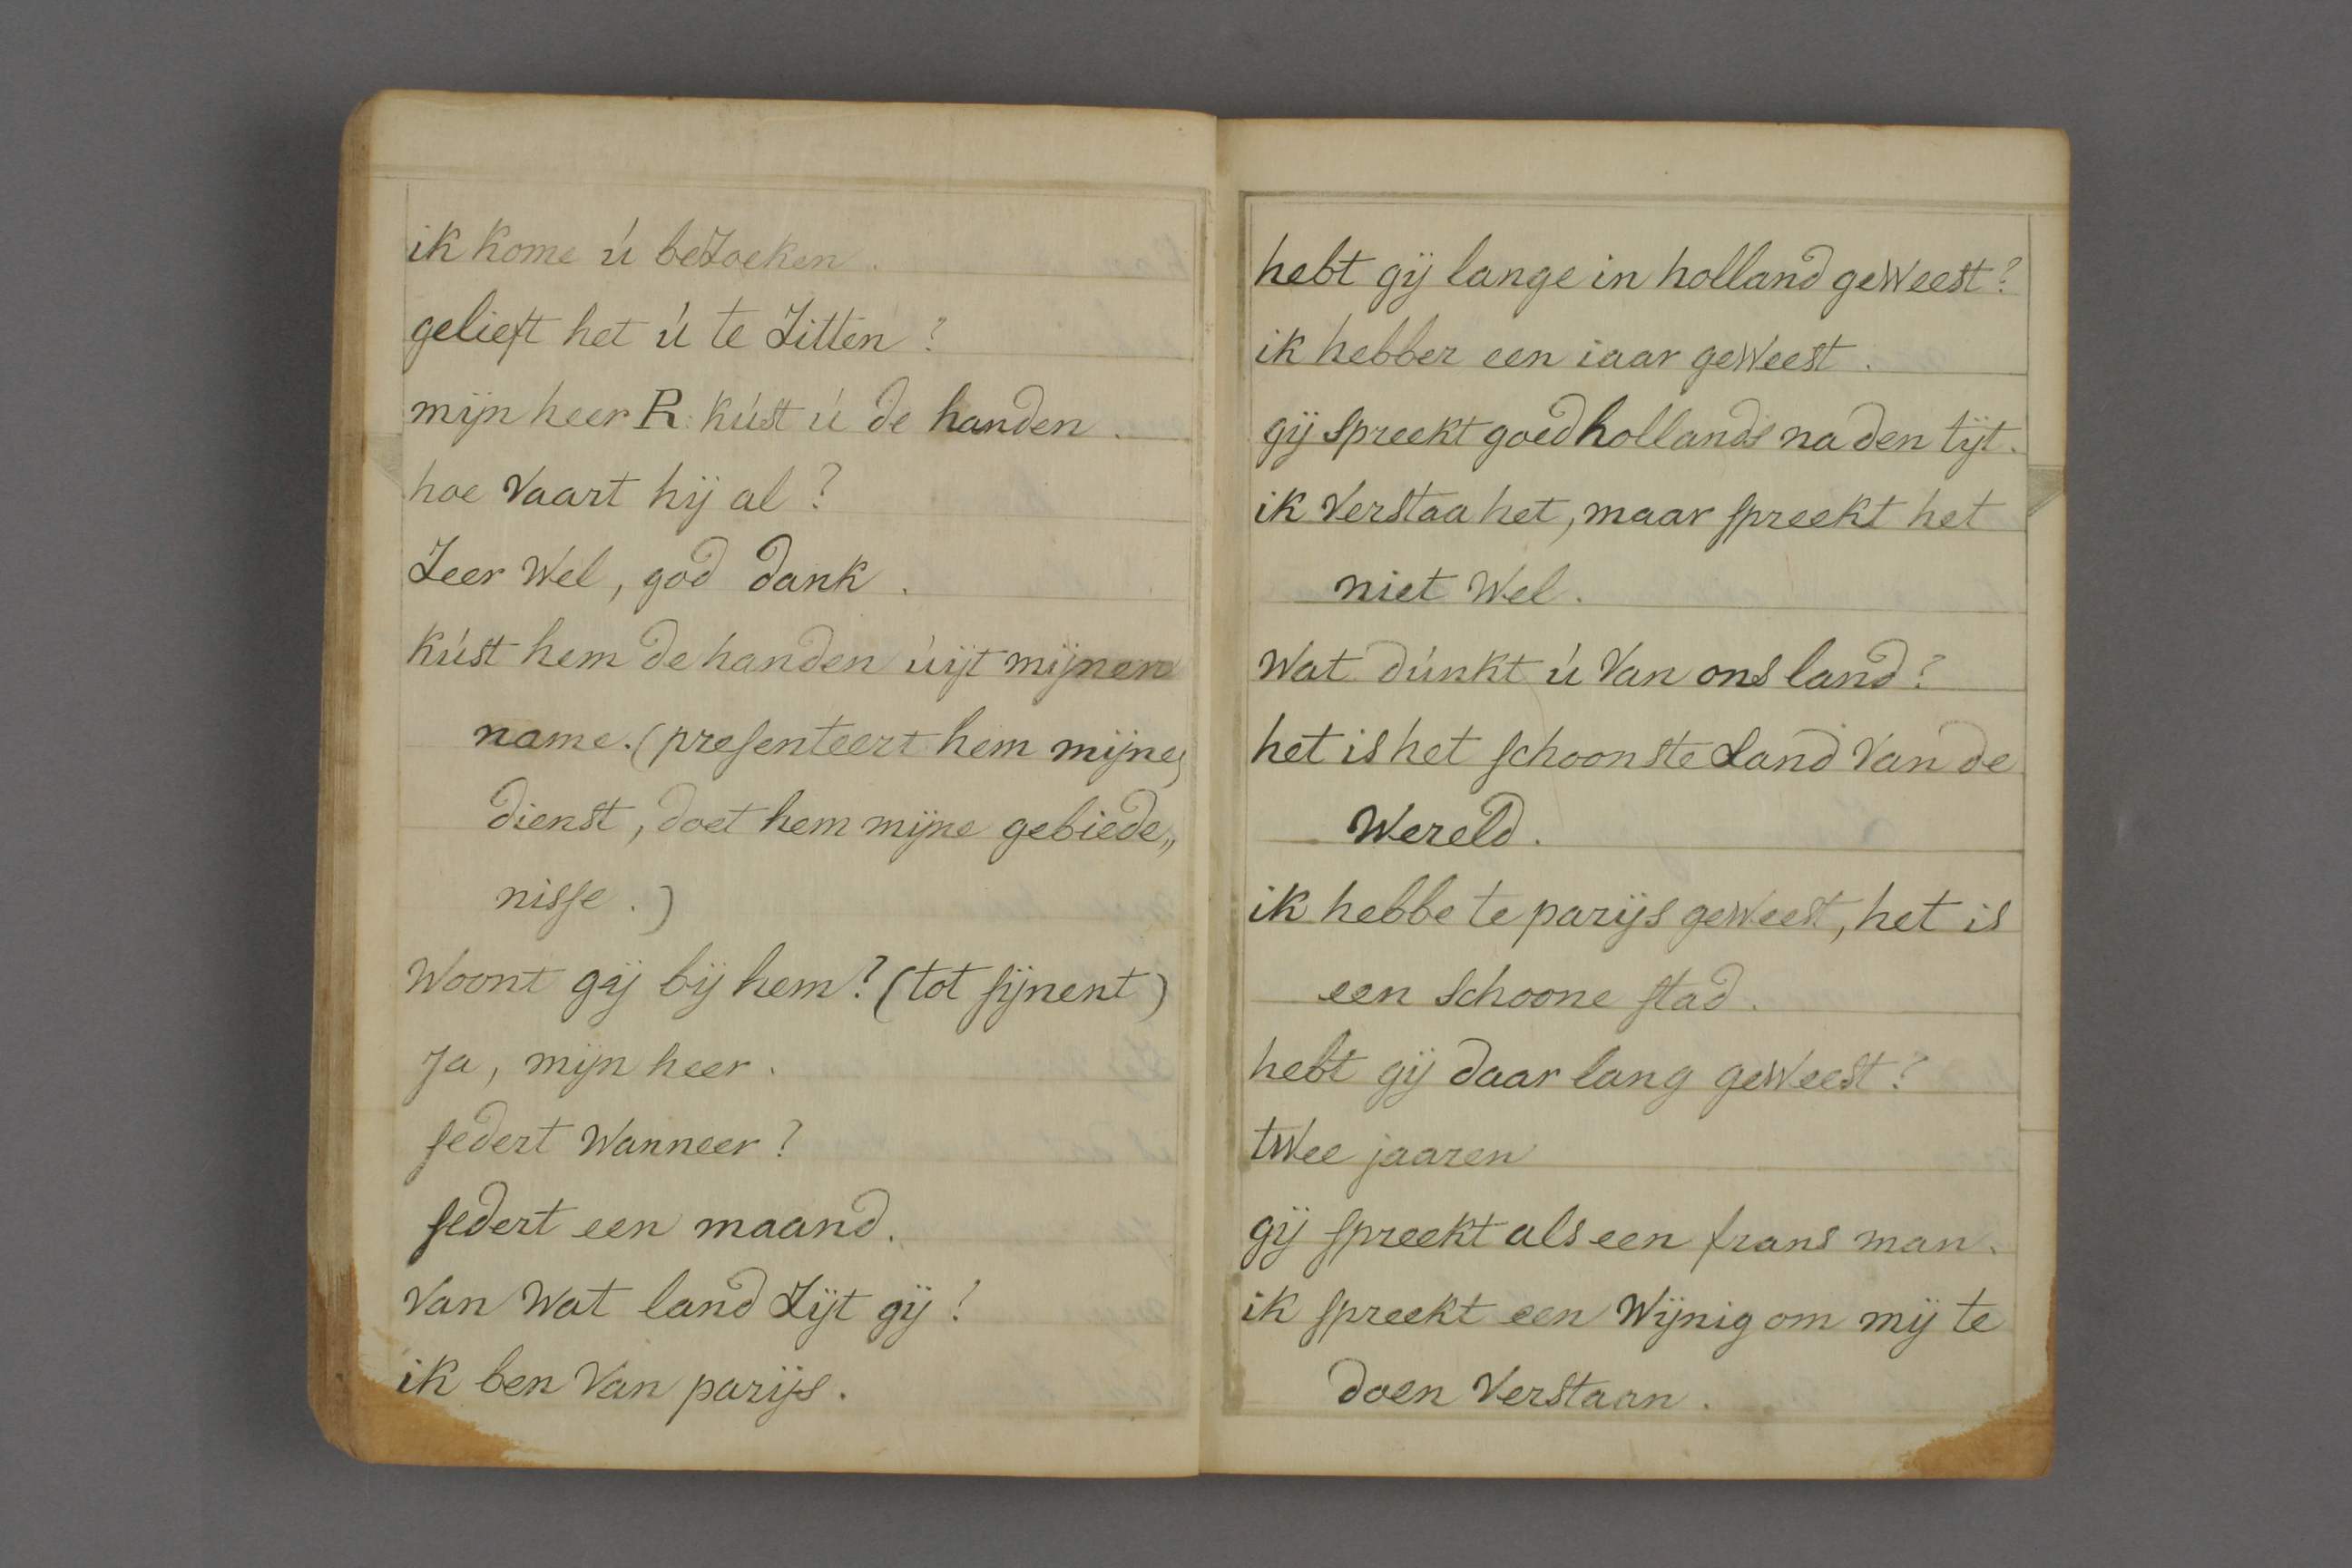 ik kome ú beZoeken.
gelieft het ú te Zitten?
mijn heer R: kúst ú de handen.
hoe Vaart hij al?
Zeer Wel, god dank.
kúst hem de handen úijt mijnen
name. (presenteert hem mijne
dienst, doet hem mijne gebiede„
nisse.)
Woont gij bij hem? (tot sijnent)
Ja, mijn heer.
sedert Wanneer?
sedert een maand.
Van Wat land Zijt gij?
ik ben Van parijs.
hebt gij lange in holland geWeest?
ik hebber een iaar geWeest.
gij spreekt goed hollands na den tijt.
ik Verstaa het, maar spreekt het
niet Wel.
Wat dúnkt ú Van ons land?
het is het schoonste Land Van de
Wereld.
ik hebbe te parijs geWeest, het is
een schoone stad.
hebt gij daar lang geWeest?
tWee jaaren
gij spreekt als een frans man.
ik spreekt een Wijnig om mij te
doen Verstaan.